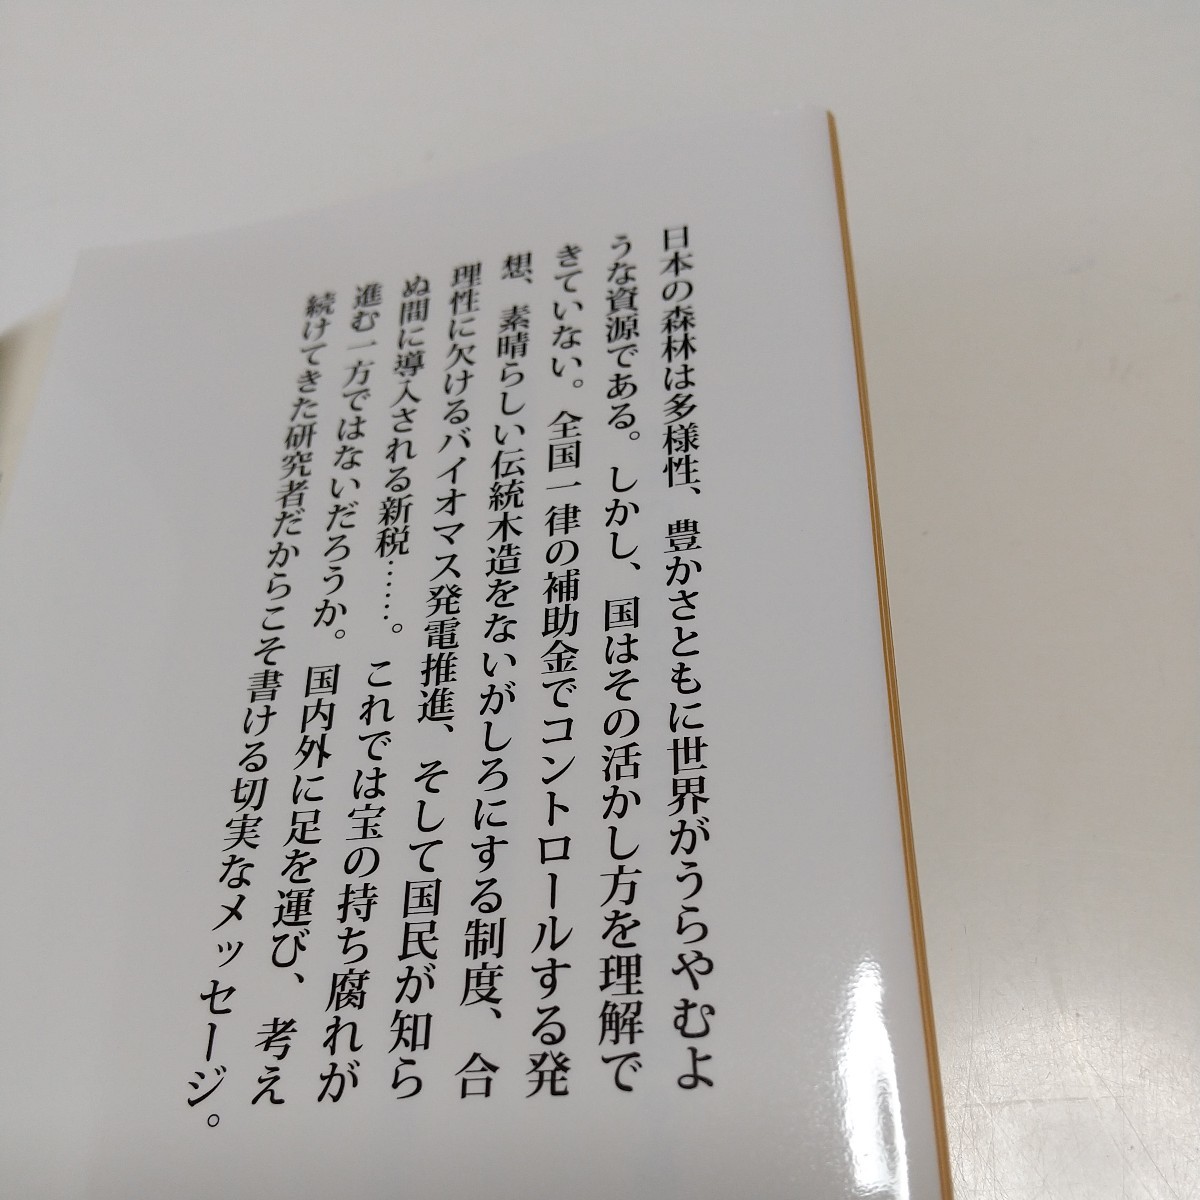 日本の森林は多様性、豊かさともに世界がうらやむよ
うな資源である。しかし、国はその活かし方を理解で
きていない。全国一律の補助金でコントロールする発
想、素晴らしい伝統木造をないがしろにする制度、合
理性に欠けるバイオマス発電推進、そして国民が知ら
ぬ間に導入される新税……。これでは宝の持ち腐れが
進む一方ではないだろうか。国内外に足を運び、考え
続けてきた研究者だからこそ書ける切実なメッセージ。